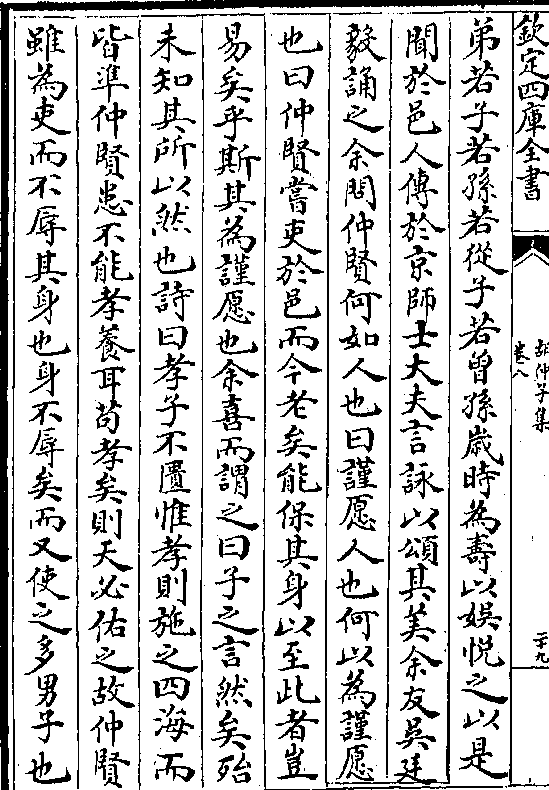 欽定四庫全書
胡仲子集
卷八
二十九
弟若子若孫若從子若曾孫歳時為壽以娯悦之以是
聞於邑人傳於京師士大夫言詠以頌其美余友吳廷
毅誦之余問仲賢何如人也曰謹愿人也何以為謹愿
也曰仲賢嘗吏於邑而今老矣能保其身以至此者豈
易矣乎斯其為謹愿也余喜而謂之曰子之言然矣殆
未知其所以然也詩曰孝子不匱惟孝則施之四海而
皆準仲賢患不能孝養耳苟孝矣則天必佑之故仲賢
雖為吏而不辱其身也身不辱矣而又使之多男子也